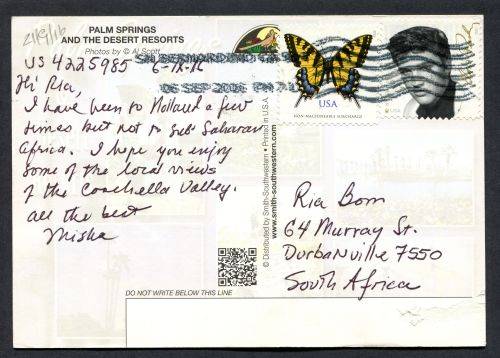 21/9/16
PALM SPRINGS
AND THE DESERT RESORTS
Photos by © Al Scott
US 4225985
Hi Ria,
I have been to Holland a few
times but not to Sub Saharan
Africa. I hope you enjoy
some of the local views
of the Coachella Valley.
all the best
Misha
06 SEP
USA
NON-MACHINEABLE SURCHARGE
© Distributed by Smith-Southwestern • Printed in U.S.A.
www.smith-southwestern.com
Ria Bom
64 Murray St.
Durbanville 7550
South Africa
DO NOT WRITE BELOW THIS LINE